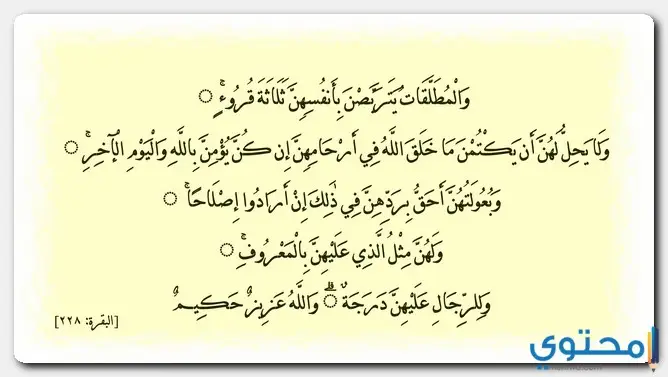 وَالْمُطَلَّقَاتُ يَتَرَبَّصْنَ بِأَنفُسِهِنَّ ثَلَاثَةَ قُرُوءٍ ۚ
وَلَا يَحِلُّ لَهُنَّ أَن يَكْتُمْنَ مَا خَلَقَ اللَّهُ فِي أَرْحَامِهِنَّ إِن كُنَّ يُؤْمِنَّ بِاللَّهِ وَالْيَوْمِ الْآخِرِ ۚ
وَبُعُولَتُهُنَّ أَحَقُّ بِرَدِّهِنَّ فِي ذَٰلِكَ إِنْ أَرَادُوا إِصْلَاحًا ۚ
وَلَهُنَّ مِثْلُ الَّذِي عَلَيْهِنَّ بِالْمَعْرُوفِ ۚ
وَلِلرِّجَالِ عَلَيْهِنَّ دَرَجَةٌ ۗ وَاللَّهُ عَزِيزٌ حَكِيمٌ
[البقرة: ٢٢٨]
محتوي